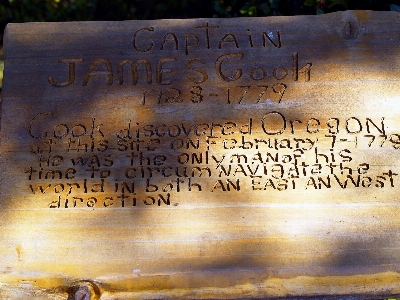 Captain
JAMES Cook
1728-1779
Cook discovered Oregon
at this site on February 7-1778
He was the only man of his
time to circumnavigate the
world in both AN EAST AN West
direction.